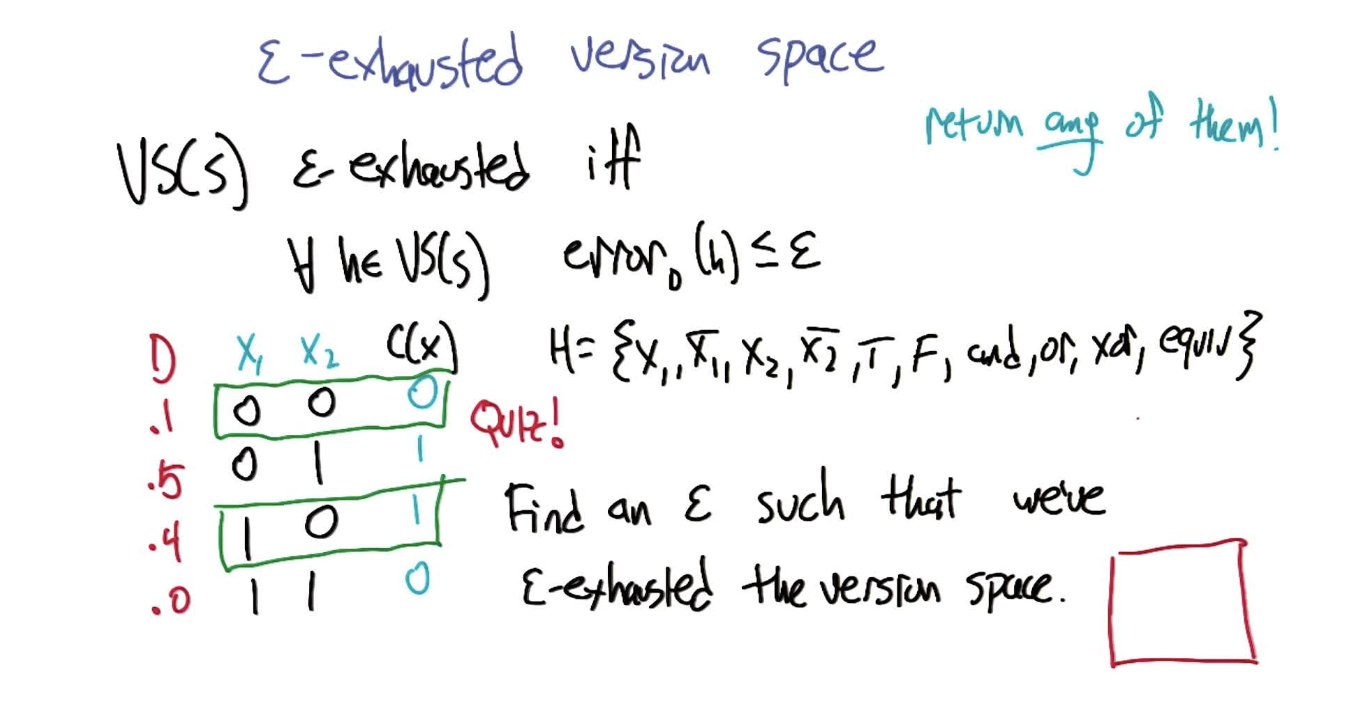 ε-exhausted version space
return any of them!
VS(S) ε-exhausted iff
∀ h∈VS(S) error_D(h) ≤ ε
D x₁ x₂ C(x) H = {x₁, x̄₁, x₂, x̄₂, T, F, and, or, xor, equiv}
.1 0 0 0 Quiz!
.5 0 1 1
.4 1 0 1 Find an ε such that we've
.0 1 1 0 ε-exhausted the version space.